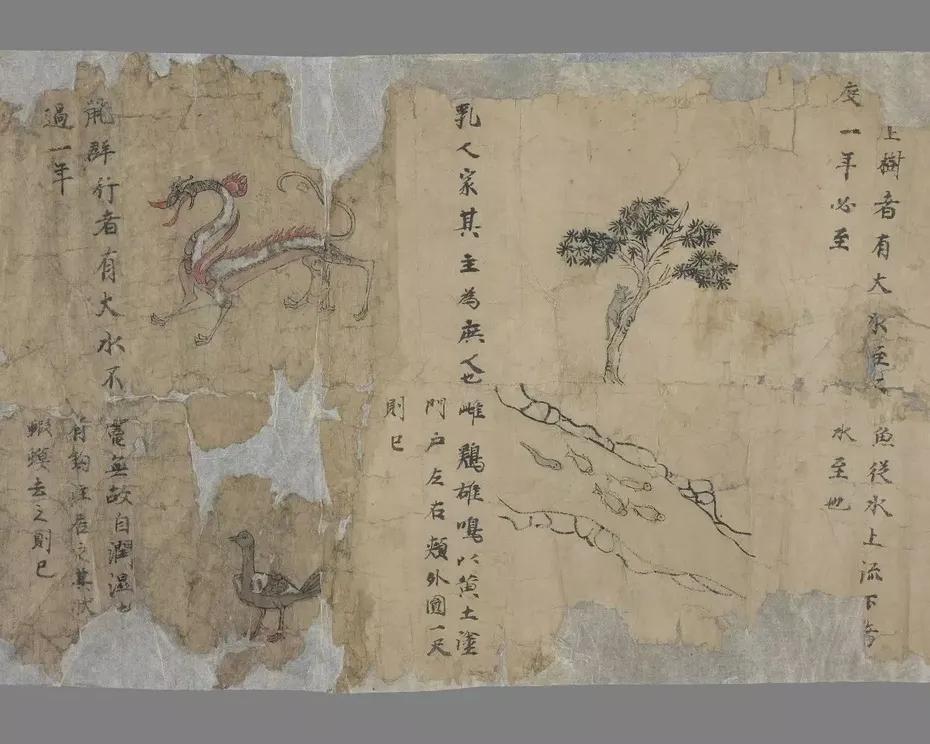 上樹者有大水至
度一年必至
乳人家其主為庶人也
鼠群行者有大水不
過一年
魚從水上流下者
水至也
雌鷄雄鳴以黃土塗
門戶左右頰外圓一尺
則已
竈無故自潤濕
有鉤注居之其狀
蝦蟆去之則已